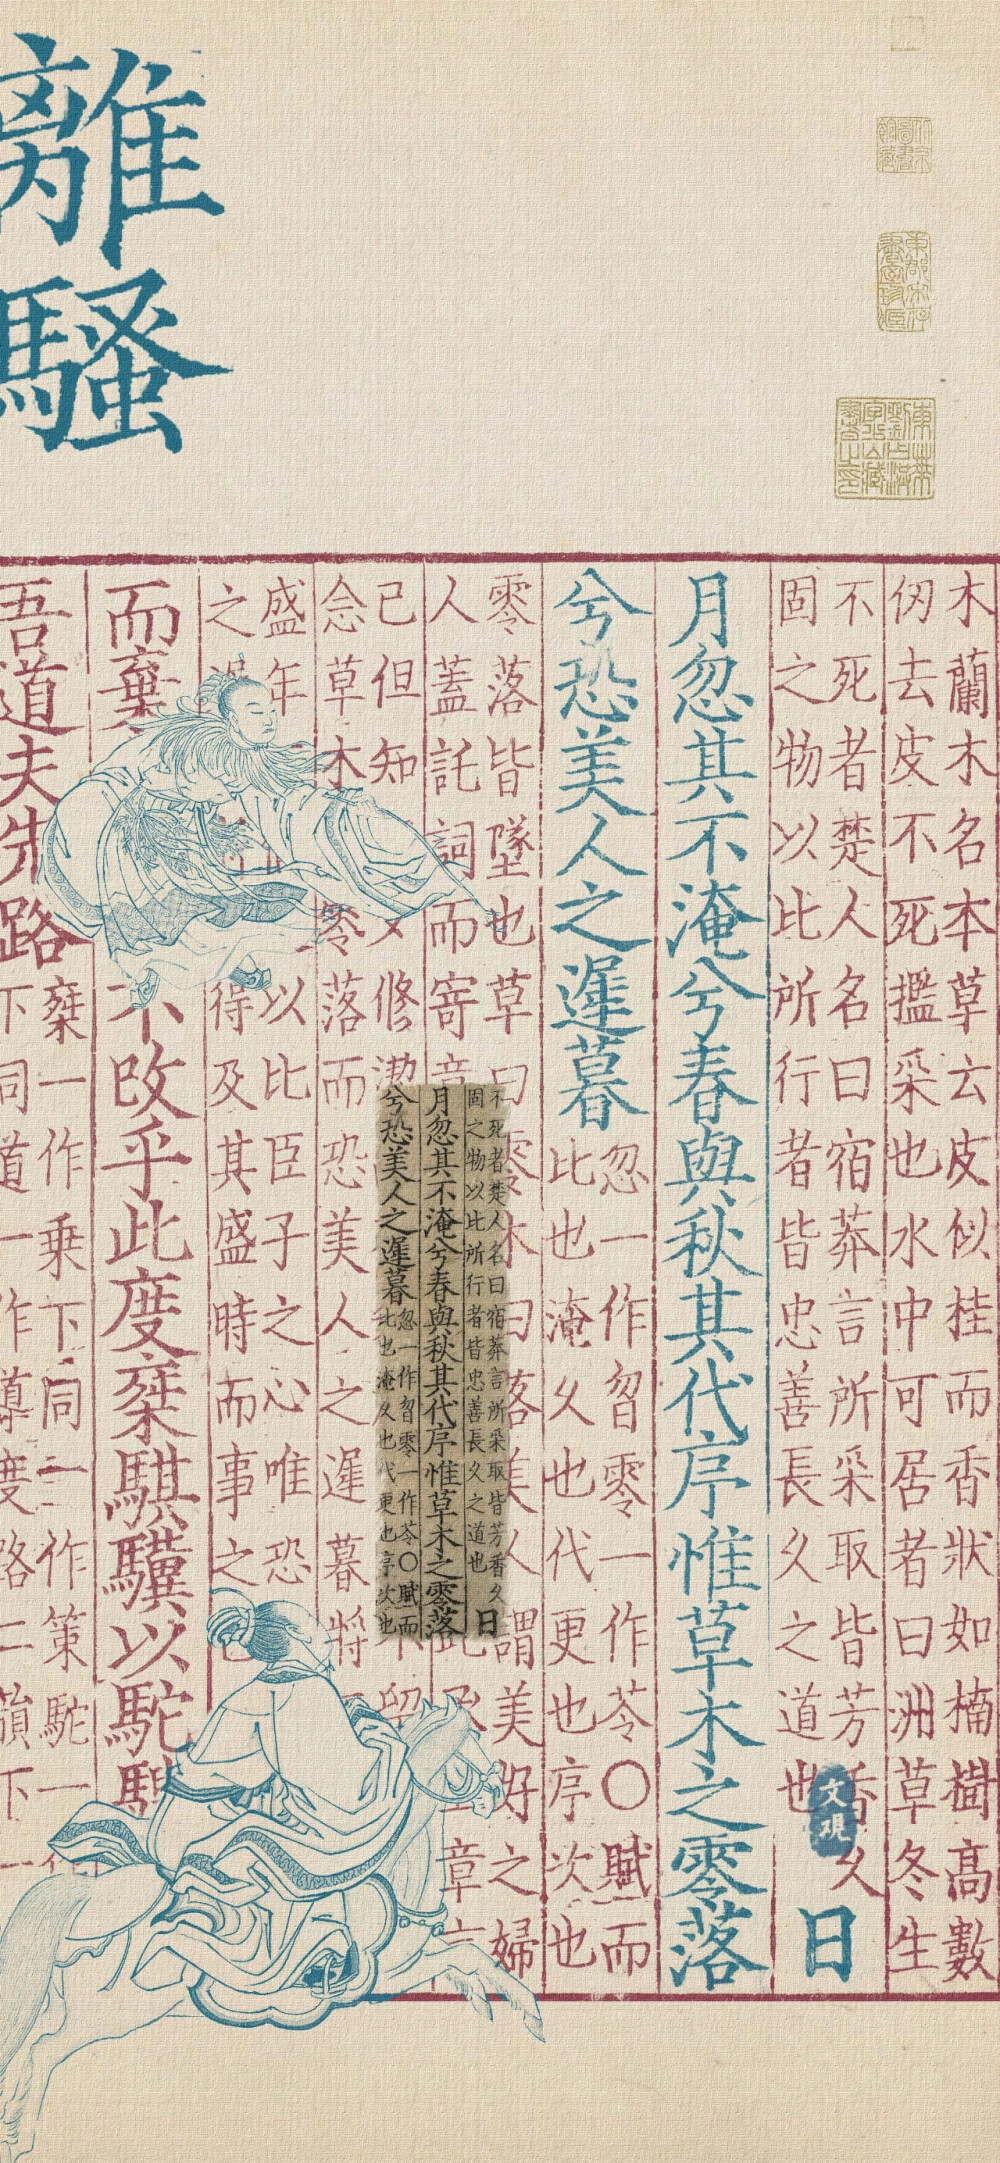 離騷
木蘭木名本草云皮似桂而香狀如楠樹高數
仞去皮不死㩜采也水中可居者曰洲草冬生
不死者楚人名曰宿莽言所采取皆芳香久
固之物以比所行者皆忠善長久之道也
日
月忽其不淹兮春與秋其代序惟草木之零落
兮恐美人之遲暮
忽一作曶零一作苓〇賦而
比也淹久也代更也序次也
零落皆墜也草曰零木曰落美人謂美好之婦
人蓋託詞而寄意 章言
已但知 又修潔
念草木 零落而恐美人之遲暮將
盛年 以比臣子之心唯恐
之 得及其盛時而事之也
而棄 不改乎此度椉騏驥以駝騁
吾道夫先路
椉一作乘下同一作策駝一作
下同道一作導度路
不死者楚人名曰宿莽言所采取皆芳香久
固之物以比所行者皆忠善長久之道也
日
月忽其不淹兮春與秋其代序惟草木之零落
兮恐美人之遲暮
忽一作曶零一作苓〇賦而
比也淹久也代更也序次也
文現